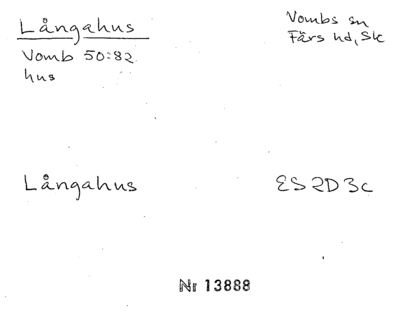 Långahus
Vomb 50:82
hus
Vombs sn
Färs hd, Sk
Långahus
ES 2D 3c
Nr 13888